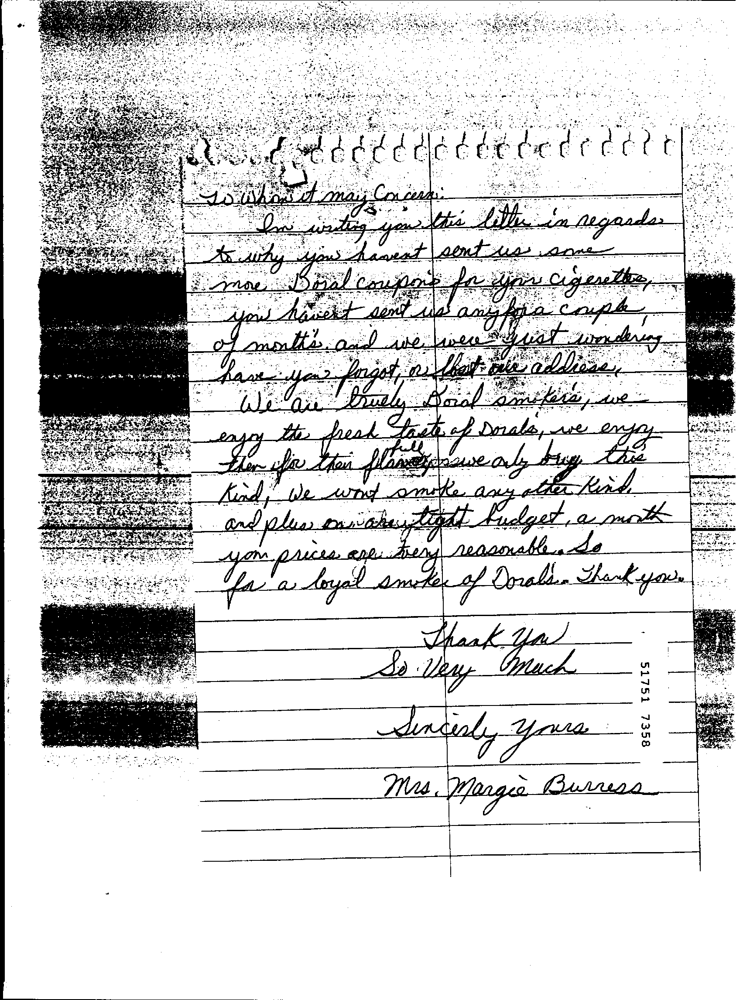 To Whom it may Concern:
Im writing you this letter in regards
to why you havent sent us some
more Doral coupons for your cigerettes,
you havent sent us any for a couple
of month's, and we were just wondering
have you forgot, or lost our address,
We are truely Doral smokers, we
enjoy the fresh taste of Dorals, we enjoy
them for their full flavor, we only buy this
Kind, We wont smoke any other Kind,
and plus on a tight budget, a month
your prices are very reasonable. So
for a loyal smoker of Doral's. Thank you.
Thank You
So Very Much
Sincerly Yours
Mrs. Margie Burress
51751 7358